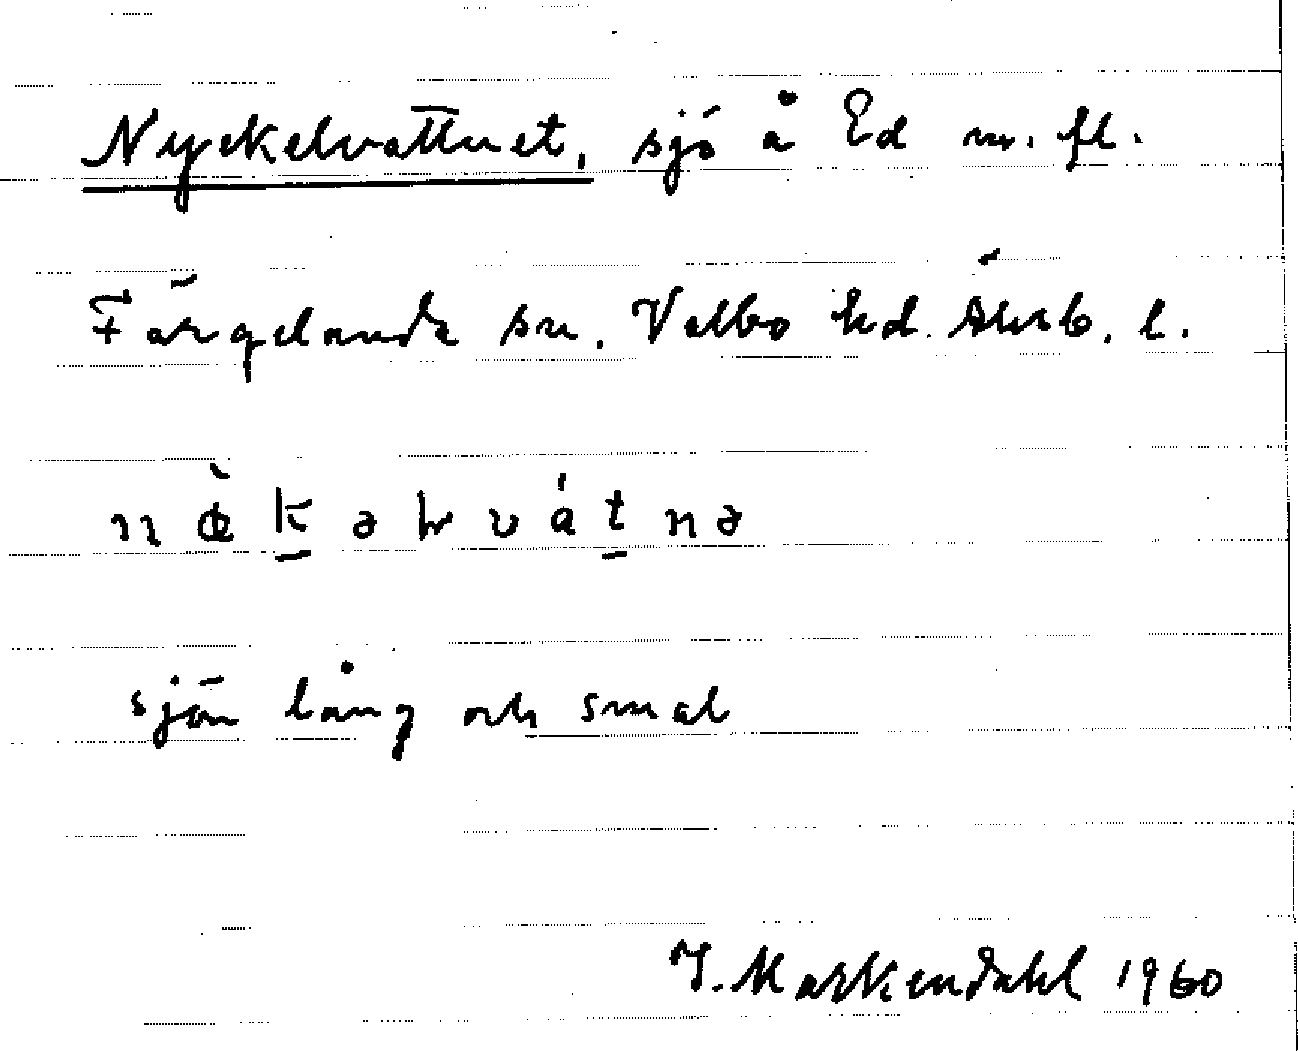 Nyckelvattnet, sjö å Ed m. fl.
Färgelanda sn. Valbo hd. Älvsb. l.
sjön lång och smal
J. Markendahl 1960